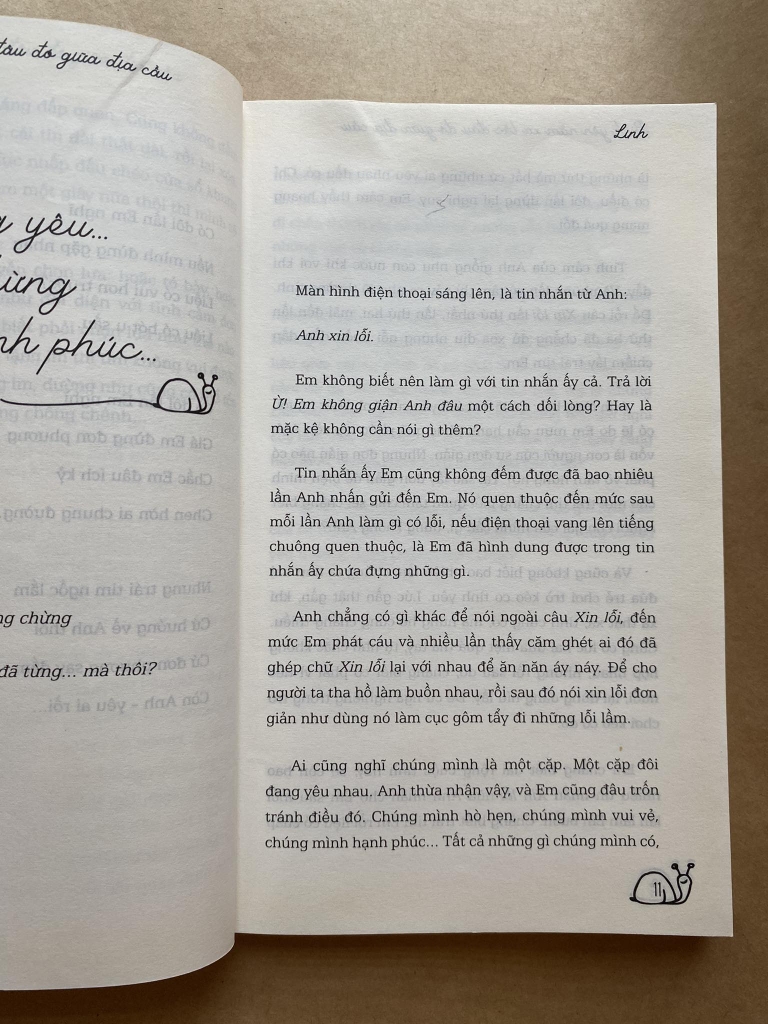 đâu đó giữa địa cầu
yêu...
phúc...
chừng
đã từng... mà thôi?
Linh
Màn hình điện thoại sáng lên, là tin nhắn từ Anh:
Anh xin lỗi.
Em không biết nên làm gì với tin nhắn ấy cả. Trả lời
Ừ! Em không giận Anh đâu một cách dối lòng? Hay là
mặc kệ không cần nói gì thêm?
Tin nhắn ấy Em cũng không đếm được đã bao nhiêu
lần Anh nhấn gửi đến Em. Nó quen thuộc đến mức sau
mỗi lần Anh làm gì có lỗi, nếu điện thoại vang lên tiếng
chuông quen thuộc, là Em đã hình dung được trong tin
nhắn ấy chứa đựng những gì.
Anh chẳng có gì khác để nói ngoài câu Xin lỗi, đến
mức Em phát cáu và nhiều lần thấy căm ghét ai đó đã
ghép chữ Xin lỗi lại với nhau để ăn năn áy náy. Để cho
người ta tha hồ làm buồn nhau, rồi sau đó nói xin lỗi đơn
giản như dùng nó làm cục gôm tẩy đi những lỗi lầm.
Ai cũng nghĩ chúng mình là một cặp. Một cặp đôi
đang yêu nhau. Anh thừa nhận vậy, và Em cũng đâu trốn
tránh điều đó. Chúng mình hò hẹn, chúng mình vui vẻ,
chúng mình hạnh phúc... Tất cả những gì chúng mình có,
11